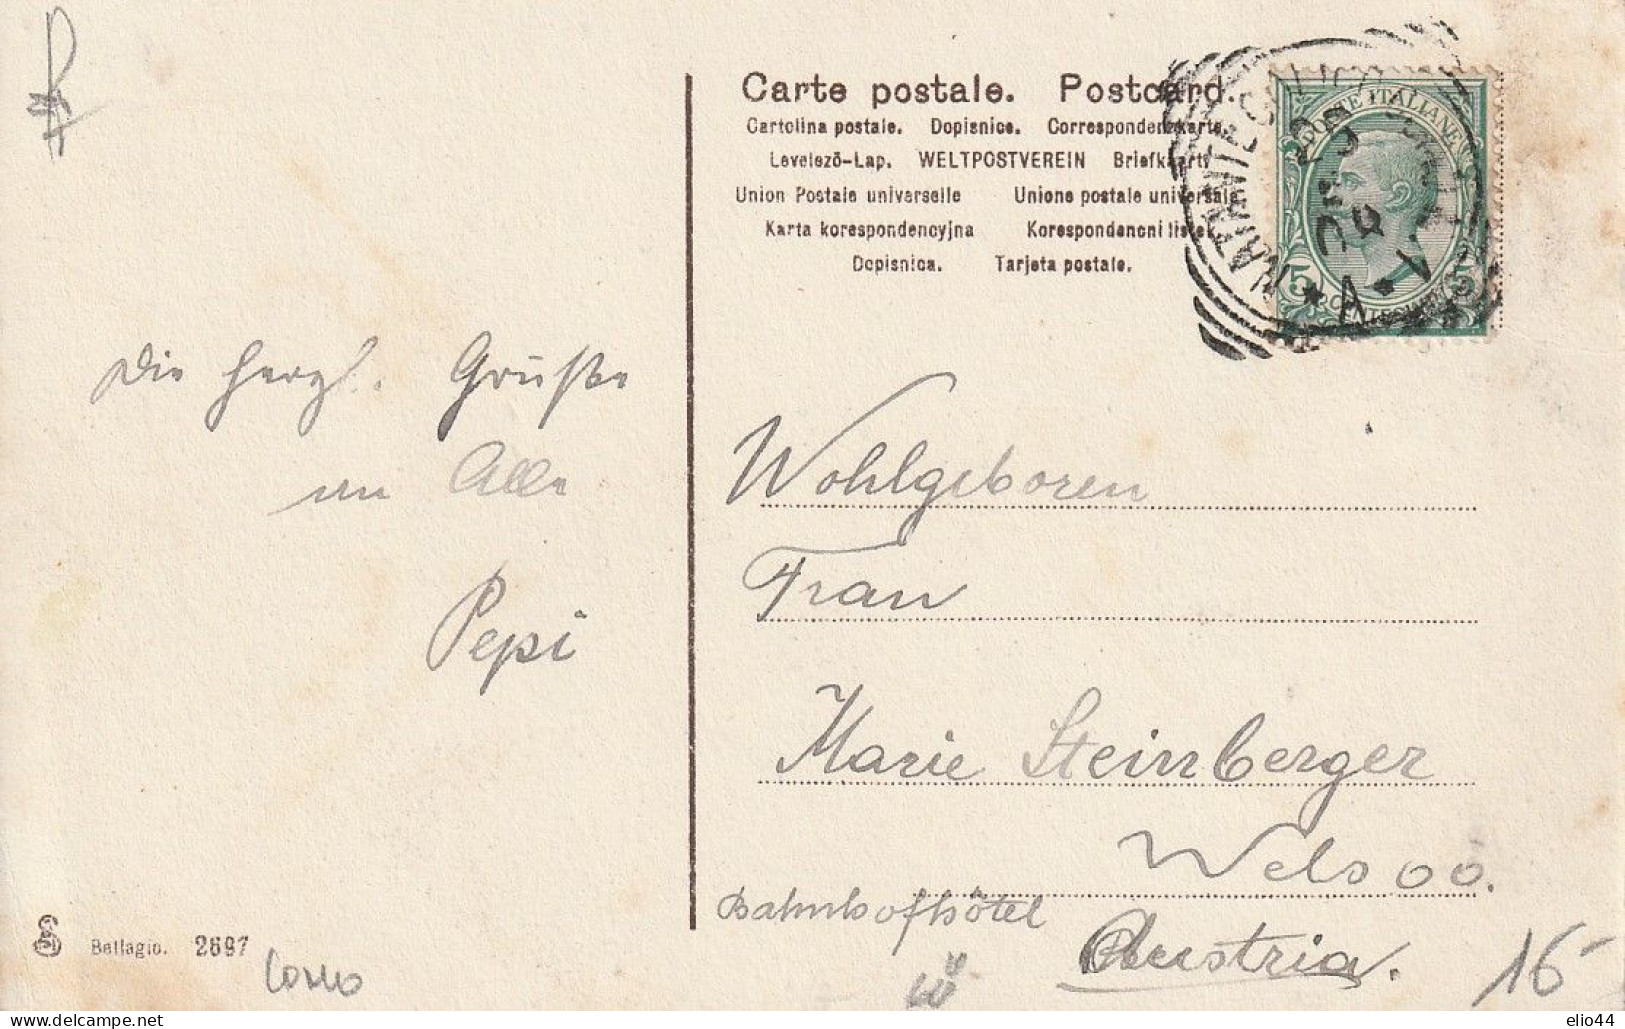 Carte postale. Postcard.
Cartolina postale. Dopisnice. Correspondenzkarte
Levelező-Lap. WELTPOSTVEREIN Briefkaart
Union Postale universelle Unione postale universale
Karta korespondencyjna Korespondencni listek
Dopisnica. Tarjeta postale.
POSTE ITALIANE
5 5
A
Die herzl. Grüße
an Alle
Pepi
Wohlgeboren
Frau
Marie Steinberger
Wels OÖ.
Bahnhofhôtel
Austria.
Bellagio. 2697
Como
16
elio44